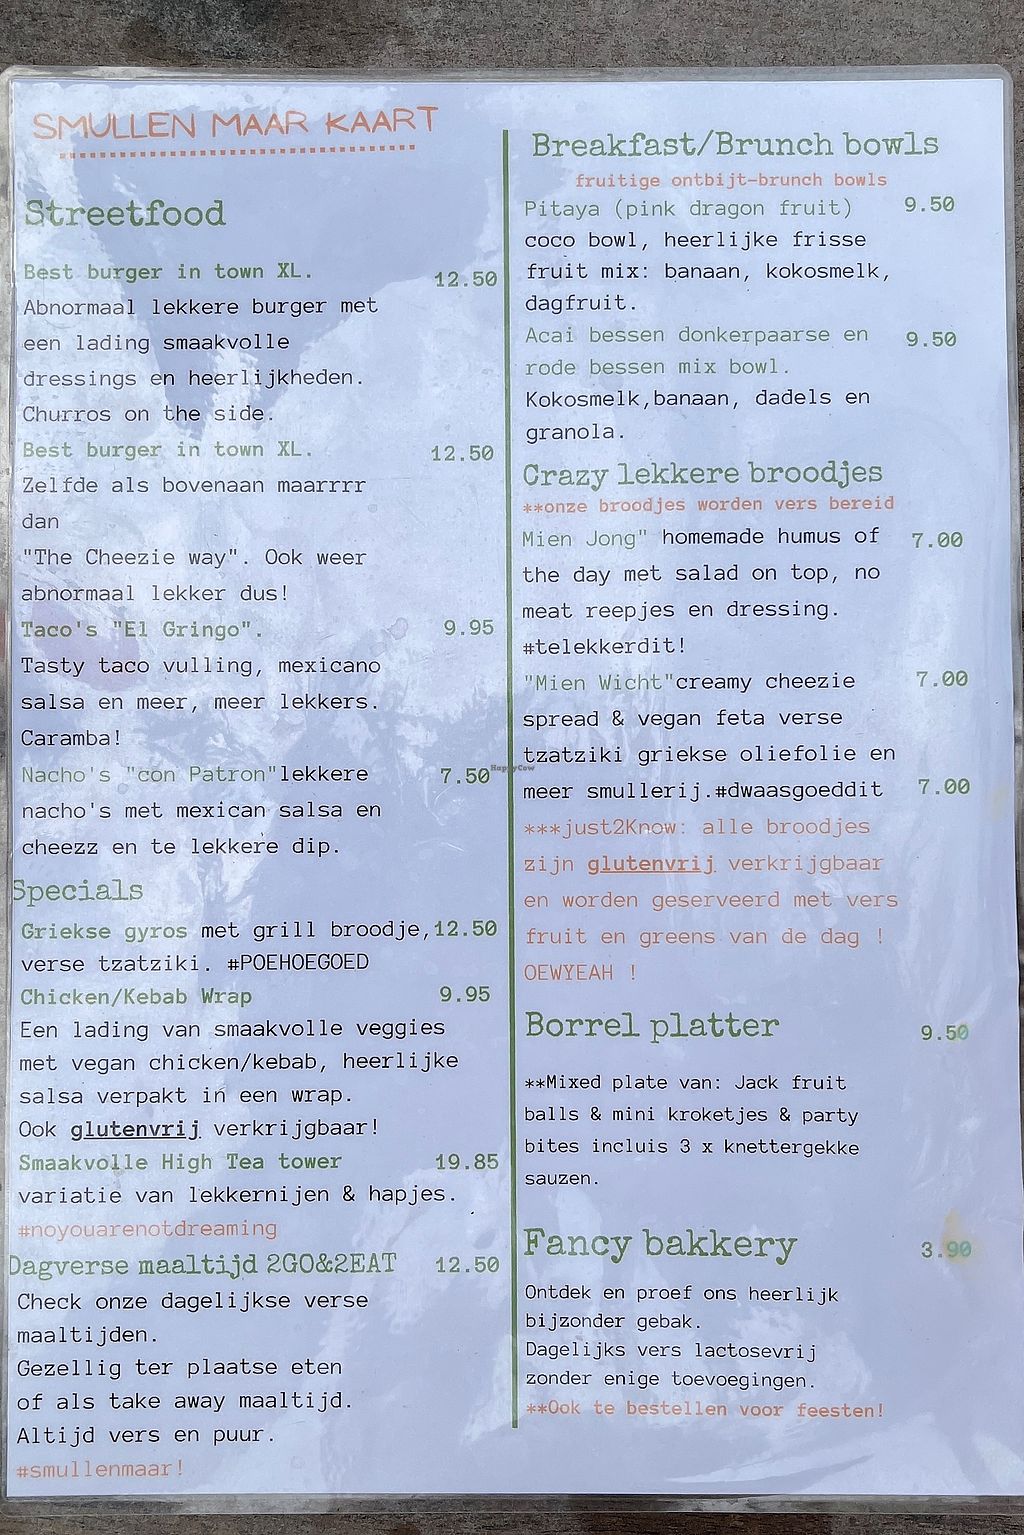 SMULLEN MAAR KAART
Streetfood
Best burger in town XL. 12.50
Abnormaal lekkere burger met
een lading smaakvolle
dressings en heerlijkheden.
Churros on the side.
Best burger in town XL. 12.50
Zelfde als bovenaan maarrrr
dan
"The Cheezie way". Ook weer
abnormaal lekker dus!
Taco's "El Gringo". 9.95
Tasty taco vulling, mexicano
salsa en meer, meer lekkers.
Caramba!
Nacho's "con Patron"lekkere 7.50
nacho's met mexican salsa en
cheezz en te lekkere dip.
Specials
Griekse gyros met grill broodje, 12.50
verse tzatziki. #POEHOEGOED
Chicken/Kebab Wrap 9.95
Een lading van smaakvolle veggies
met vegan chicken/kebab, heerlijke
salsa verpakt in een wrap.
Ook glutenvrij verkrijgbaar!
Smaakvolle High Tea tower 19.85
variatie van lekkernijen & hapjes.
#noyouarenotdreaming
Dagverse maaltijd 2GO&2EAT 12.50
Check onze dagelijkse verse
maaltijden.
Gezellig ter plaatse eten
of als take away maaltijd.
Altijd vers en puur.
#smullenmaar!
Breakfast/Brunch bowls
fruitige ontbijt-brunch bowls
Pitaya (pink dragon fruit) 9.50
coco bowl, heerlijke frisse
fruit mix: banaan, kokosmelk,
dagfruit.
Acai bessen donkerpaarse en 9.50
rode bessen mix bowl.
Kokosmelk,banaan, dadels en
granola.
Crazy lekkere broodjes
**onze broodjes worden vers bereid
Mien Jong" homemade humus of 7.00
the day met salad on top, no
meat reepjes en dressing.
#telekkerdit!
"Mien Wicht"creamy cheezie 7.00
spread & vegan feta verse
tzatziki griekse oliefolie en
meer smullerij.#dwaasgoeddit 7.00
***just2Know: alle broodjes
zijn glutenvrij verkrijgbaar
en worden geserveerd met vers
fruit en greens van de dag !
OEWYEAH !
Borrel platter 9.50
**Mixed plate van: Jack fruit
balls & mini kroketjes & party
bites incluis 3 x knettergekke
sauzen.
Fancy bakkery 3.90
Ontdek en proef ons heerlijk
bijzonder gebak.
Dagelijks vers lactosevrij
zonder enige toevoegingen.
**Ook te bestellen voor feesten!
HappyCow